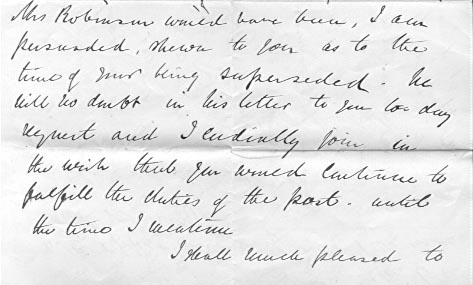 Mrs Robinson would have been, I am
persuaded, shewn to you as to the
time of your being superseded. He
will no doubt in his letter to you to day
request and I cordially join in
the wish that you would continue to
fulfill the duties of the post. until
the time I mention
I shall much pleased to